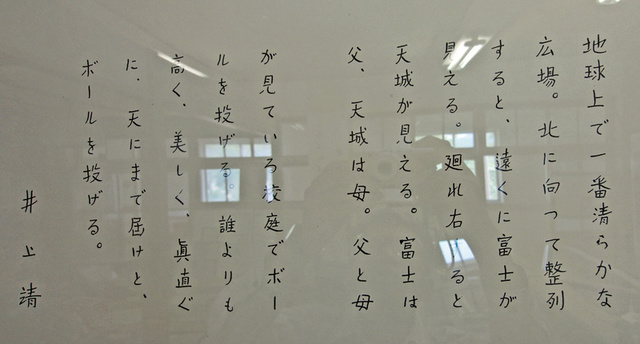 地球上で一番清らかな
広場。北に向って整列
すると、遠くに富士が
見える。廻れ右すると
天城が見える。富士は
父、天城は母。父と母
が見ている校庭でボー
ルを投げる。誰よりも
高く、美しく、眞直ぐ
に、天にまで届けと、
ボールを投げる。
井上靖